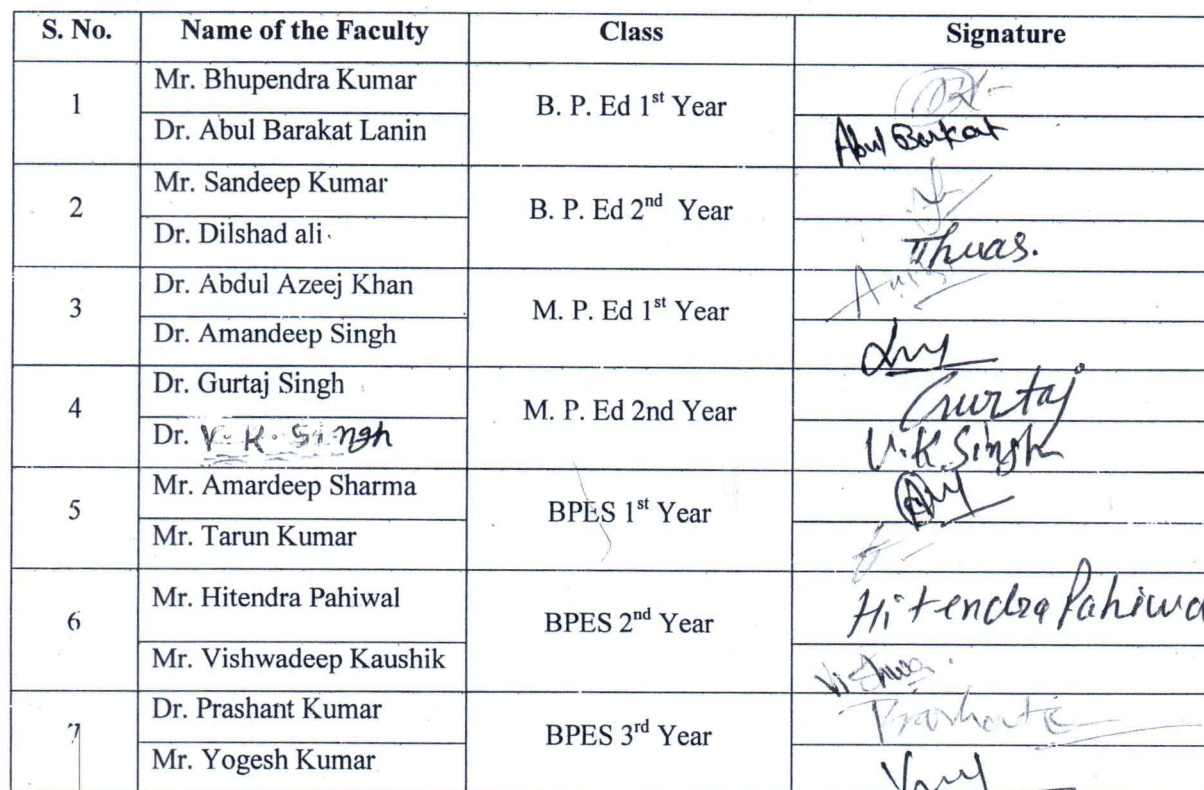 S. No. Name of the Faculty Class Signature
1 Mr. Bhupendra Kumar B. P. Ed 1st Year
Dr. Abul Barakat Lanin Abul Barkat
2 Mr. Sandeep Kumar B. P. Ed 2nd Year
Dr. Dilshad ali
3 Dr. Abdul Azeej Khan M. P. Ed 1st Year
Dr. Amandeep Singh
4 Dr. Gurtaj Singh M. P. Ed 2nd Year Gurtaj
Dr. V. K. Singh V.K Singh
5 Mr. Amardeep Sharma BPES 1st Year
Mr. Tarun Kumar
6 Mr. Hitendra Pahiwal BPES 2nd Year Hitendra Pahiwa
Mr. Vishwadeep Kaushik Vishwa
7 Dr. Prashant Kumar BPES 3rd Year
Mr. Yogesh Kumar